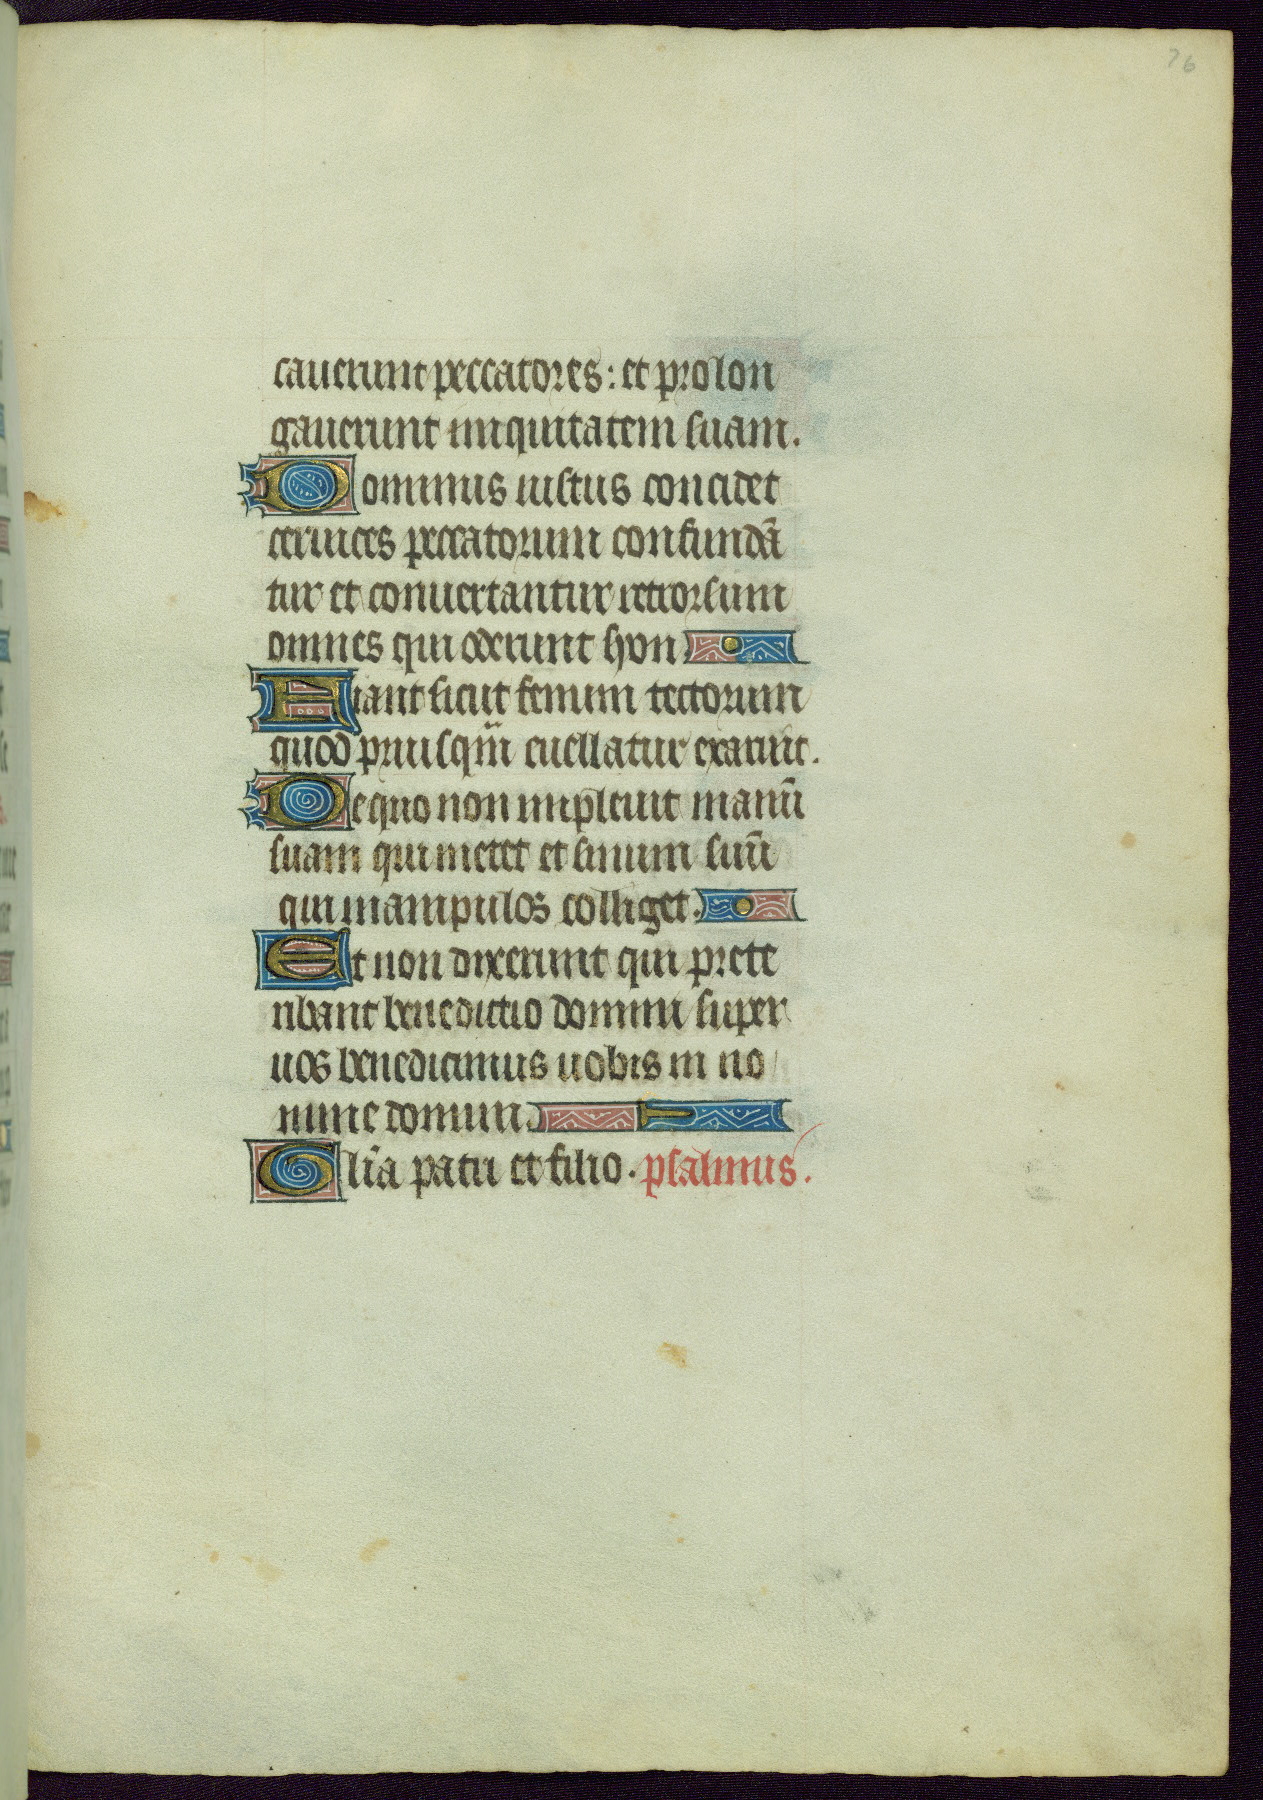 76
cauerunt peccatores: et prolon
gauerunt iniquitatem suam.
Dominus iustus concidet
ceruices peccatorum confundã
tur et conuertantur retrorsum
omnes qui oderunt syon
Fiant sicut fenum tectorum
quod priusqm̃ euellatur exaruit.
De quo non impleuit manũ
suam qui metet et sinum suũ
qui manipulos colliget.
Et non dixerunt qui prete
ribant benedictio domini super
uos benedicimus uobis in no
mine domini
Glr̃ia patri et filio. psalmus.